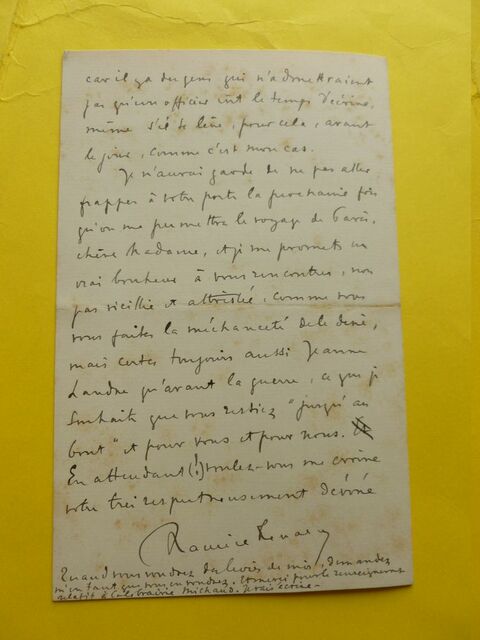 car il y a des gens qui n'admettraient
pas qu'un officier eût le temps d'écrire,
même s'il se lève, pour cela, avant
le jour, comme c'est mon cas.
Je n'aurai garde de ne pas aller
frapper à votre porte la prochaine fois
qu'on me permettra le voyage de Paris,
chère Madame, et je me promets un
vrai bonheur à vous rencontrer, non
pas vieillie et attristée, comme vous
vous faites la méchanceté de le dire,
mais certes toujours aussi Jeanne
Landre qu'avant la guerre, ce que je
souhaite que vous restiez "jusqu'au
bout" et pour vous et pour nous.
En attendant (!) voulez-vous me croire
votre très respectueusement dévoué
Maurice Renard
Quand vous voudrez des livres de moi, demandez
m'en tant que vous en voudrez. Et merci pour le renseignement
relatif à la librairie Michaud. Je vais écrire.